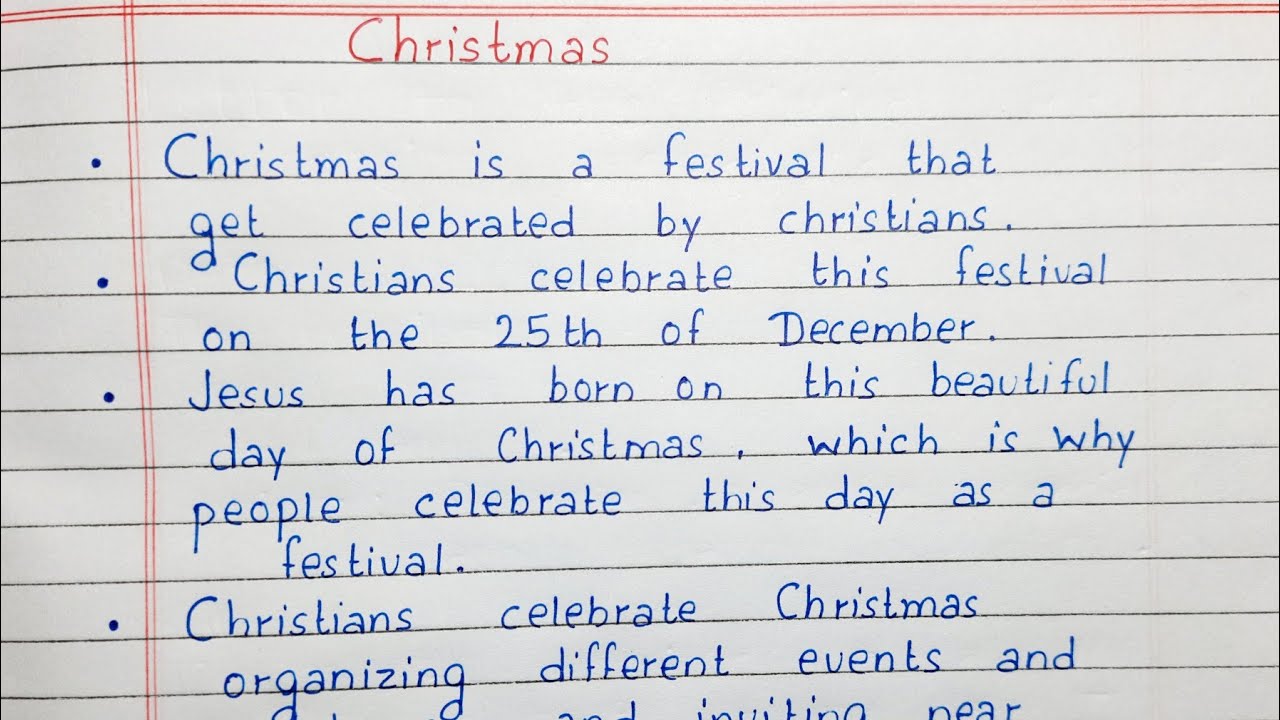 Christmas
• Christmas is a festival that
get celebrated by christians.
• Christians celebrate this festival
on the 25th of December.
• Jesus has born on this beautiful
day of Christmas, which is why
people celebrate this day as a
festival.
• Christians celebrate Christmas
organizing different events and
and inviting near